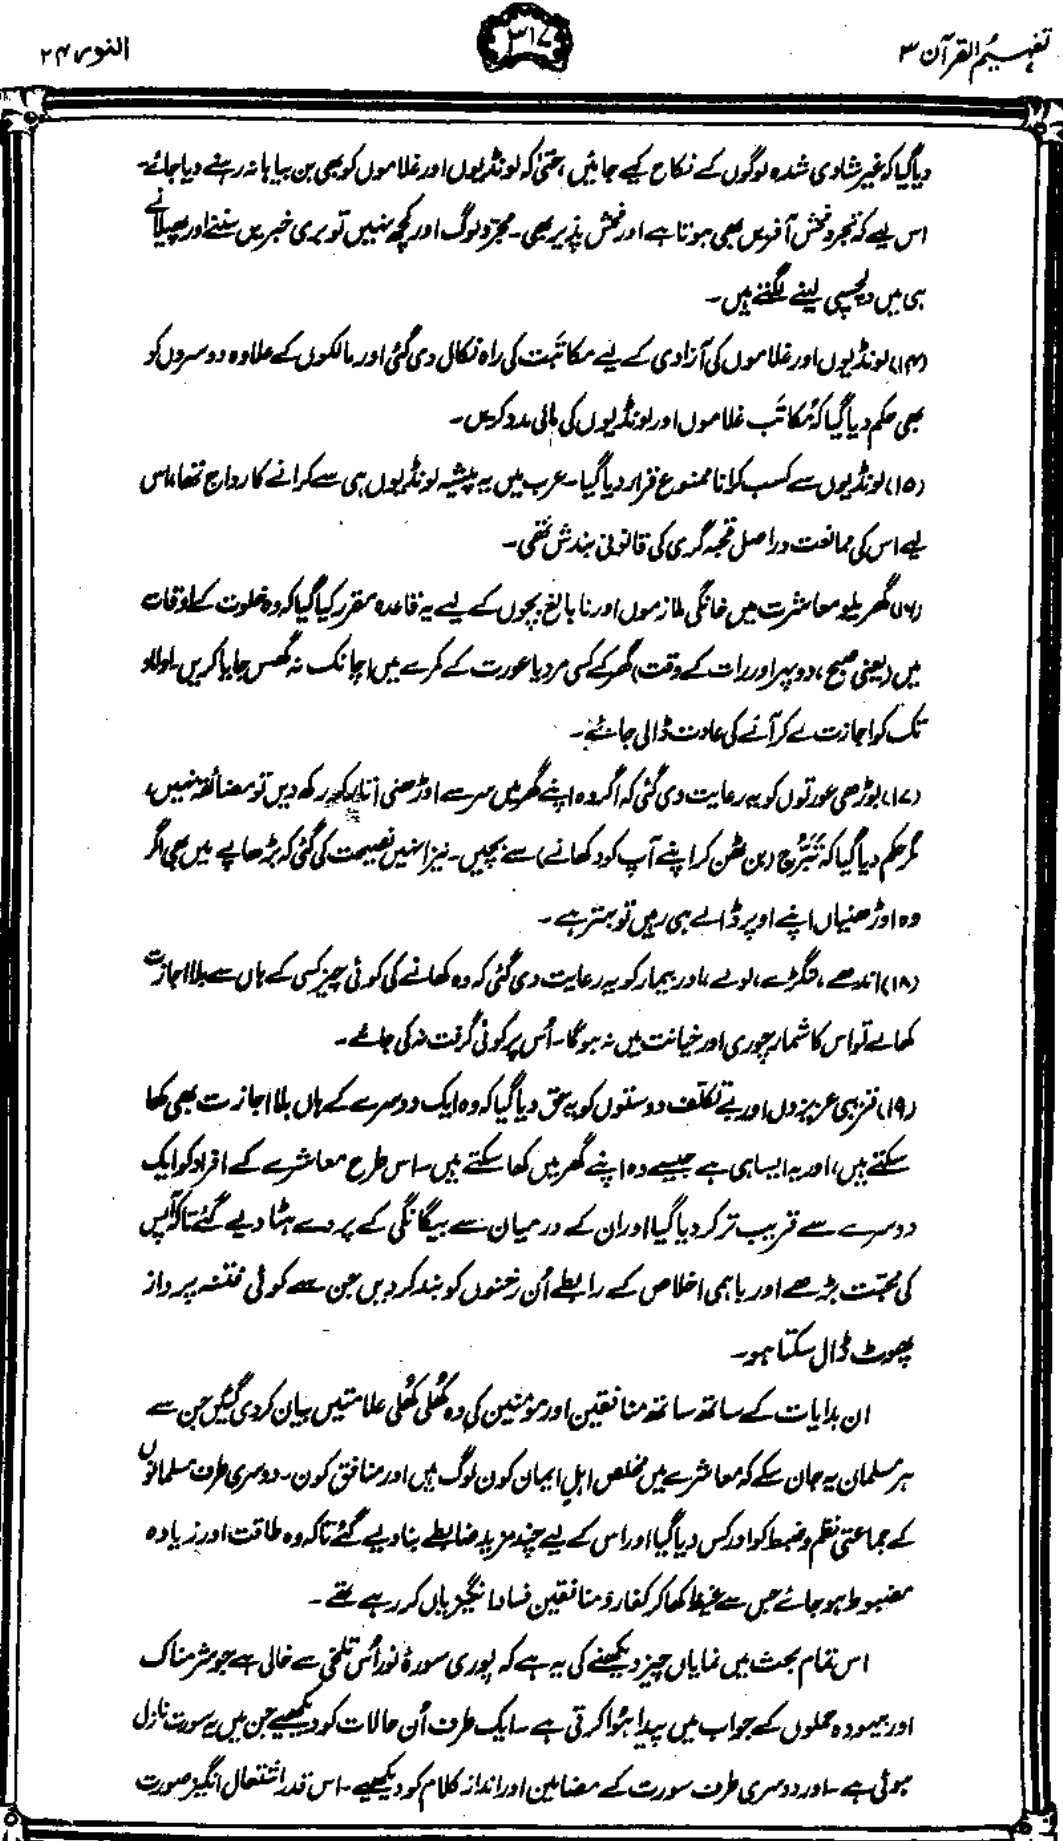 تفہیم القرآن ۳
۳۱۷
النور ۲۴
دیا گیا کہ غیر شادی شدہ لوگوں کے نکاح کیے جائیں، حتیٰ کہ لونڈیوں اور غلاموں کو بھی بن بیاہا نہ رہنے دیا جائے۔
اس لیے کہ تجرد فحش آفریں بھی ہوتا ہے اور فحش پذیر بھی۔ مجرد لوگ اور کچھ نہیں تو بری خبریں سننے اور پھیلانے
ہی میں دلچسپی لینے لگتے ہیں۔
(۱۴) لونڈیوں اور غلاموں کی آزادی کے لیے مکاتَبت کی راہ نکال دی گئی اور مالکوں کے علاوہ دوسروں کو
بھی حکم دیا گیا کہ مُکاتَب غلاموں اور لونڈیوں کی مالی مدد کریں۔
(۱۵) لونڈیوں سے کسب کرانا ممنوع قرار دیا گیا۔ عرب میں یہ پیشہ لونڈیوں ہی سے کرانے کا رواج تھا، اس
لیے اس کی ممانعت دراصل قحبہ گری کی قانونی بندش تھی۔
(۱۶) گھریلو معاشرت میں خانگی ملازموں اور نابالغ بچوں کے لیے یہ قاعدہ مقرر کیا گیا کہ وہ خلوت کے اوقات
میں (یعنی صبح، دوپہر اور رات کے وقت) گھر کے کسی مرد یا عورت کے کمرے میں اچانک نہ گھس جایا کریں۔ اولاد
تک کو اجازت لے کر آنے کی عادت ڈالی جائے۔
(۱۷) بوڑھی عورتوں کو یہ رعایت دی گئی کہ اگر وہ اپنے گھر میں سر سے اوڑھنی اتار کر رکھ دیں تو مضائقہ نہیں،
مگر حکم دیا گیا کہ تَبَرُّج (بن ٹھن کر اپنے آپ کو دکھانے) سے بچیں۔ نیز انہیں نصیحت کی گئی کہ بڑھاپے میں بھی اگر
وہ اوڑھنیاں اپنے اوپر ڈالے ہی رہیں تو بہتر ہے۔
(۱۸) اندھے، لنگڑے، لولے، اور بیمار کو یہ رعایت دی گئی کہ وہ کھانے کی کوئی چیز کسی کے ہاں سے بلا اجازت
کھا لے تو اس کا شمار چوری اور خیانت میں نہ ہوگا۔ اُس پر کوئی گرفت نہ کی جائے۔
(۱۹) قریبی عزیزوں اور بے تکلف دوستوں کو یہ حق دیا گیا کہ وہ ایک دوسرے کے ہاں بلا اجازت بھی کھا
سکتے ہیں، اور یہ ایسا ہی ہے جیسے وہ اپنے گھر میں کھا سکتے ہیں۔ اس طرح معاشرے کے افراد کو ایک
دوسرے سے قریب تر کر دیا گیا اور ان کے درمیان سے بیگانگی کے پردے ہٹا دیے گئے تاکہ آپس
کی محبّت بڑھے اور باہمی اخلاص کے رابطے اُن رخنوں کو بند کر دیں جن سے کوئی فتنہ پرداز
پھوٹ ڈال سکتا ہو۔
ان ہدایات کے ساتھ ساتھ منافقین اور مؤمنین کی وہ کھُلی کھُلی علامتیں بیان کر دی گئیں جن سے
ہر مسلمان یہ جان سکے کہ معاشرے میں مخلص اہلِ ایمان کون لوگ ہیں اور منافق کون۔ دوسری طرف مسلمانوں
کے جماعتی نظم و ضبط کو اور کس دیا گیا اور اس کے لیے چند مزید ضابطے بنا دیے گئے تاکہ وہ طاقت اور زیادہ
مضبوط ہو جائے جس سے غیظ کھا کر کفار و منافقین فساد انگیزیاں کر رہے تھے۔
اس تمام بحث میں نمایاں چیز دیکھنے کی یہ ہے کہ پوری سورۂ نور اُس تلخی سے خالی ہے جو شرمناک
اور بیہودہ حملوں کے جواب میں پیدا ہُوا کرتی ہے۔ ایک طرف اُن حالات کو دیکھیے جن میں یہ سورت نازل
ہوئی ہے۔ اور دوسری طرف سورت کے مضامین اور انداز کلام کو دیکھیے۔ اس قدر اشتعال انگیز صورت